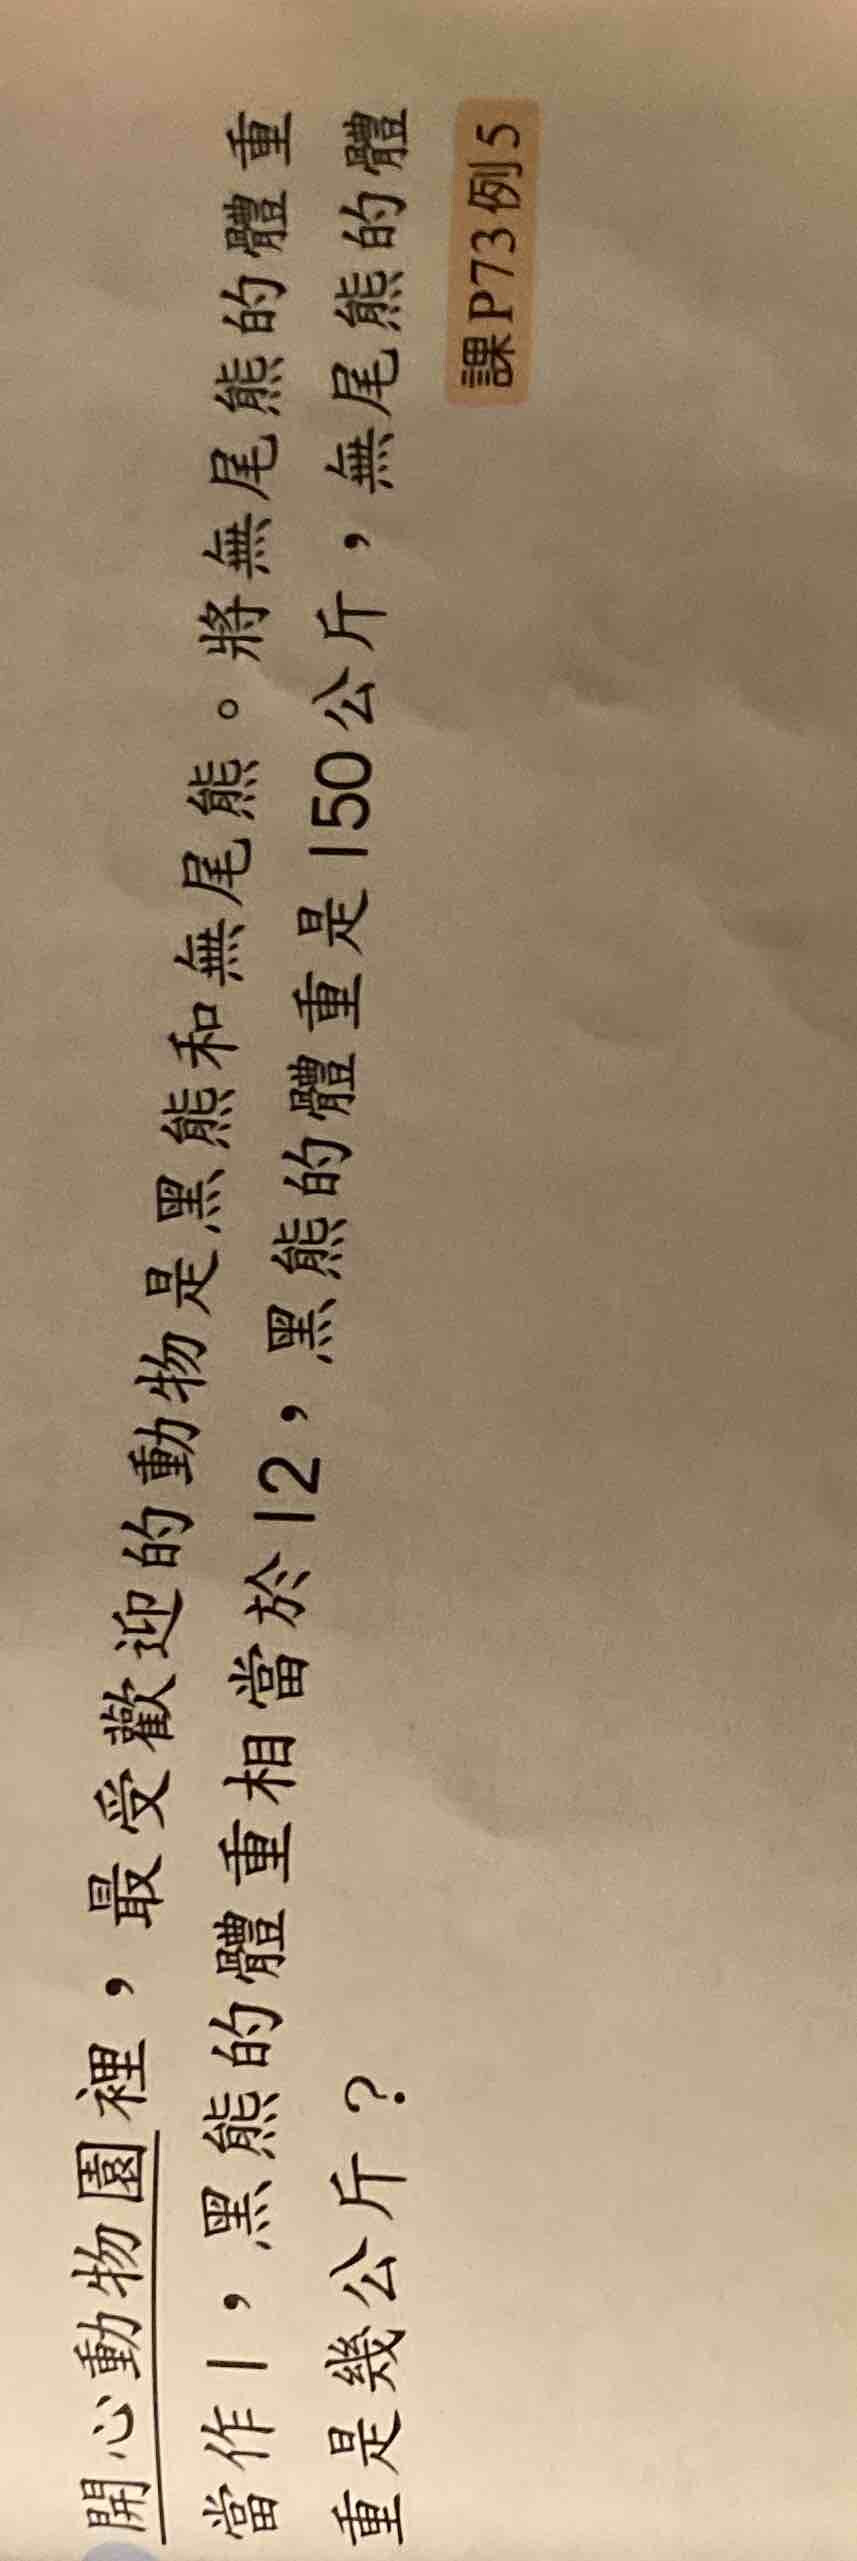 開心動物園裡，最受歡迎的動物是黑熊和無尾熊。將無尾熊的體重
當作1，黑熊的體重相當於12，黑熊的體重是150公斤，無尾熊的體
重是幾公斤？
課P73例5